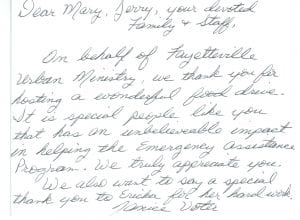 Dear Mary, Jerry, your devoted
Family & Staff,
On behalf of Fayetteville
Urban Ministry, we thank you for
hosting a wonderful food drive.
It is special people like you
that has an unbelievable impact
in helping the Emergency Assistance
Program. We truly appreciate you.
We also want to say a special
thank you to Ericka for her hard work.